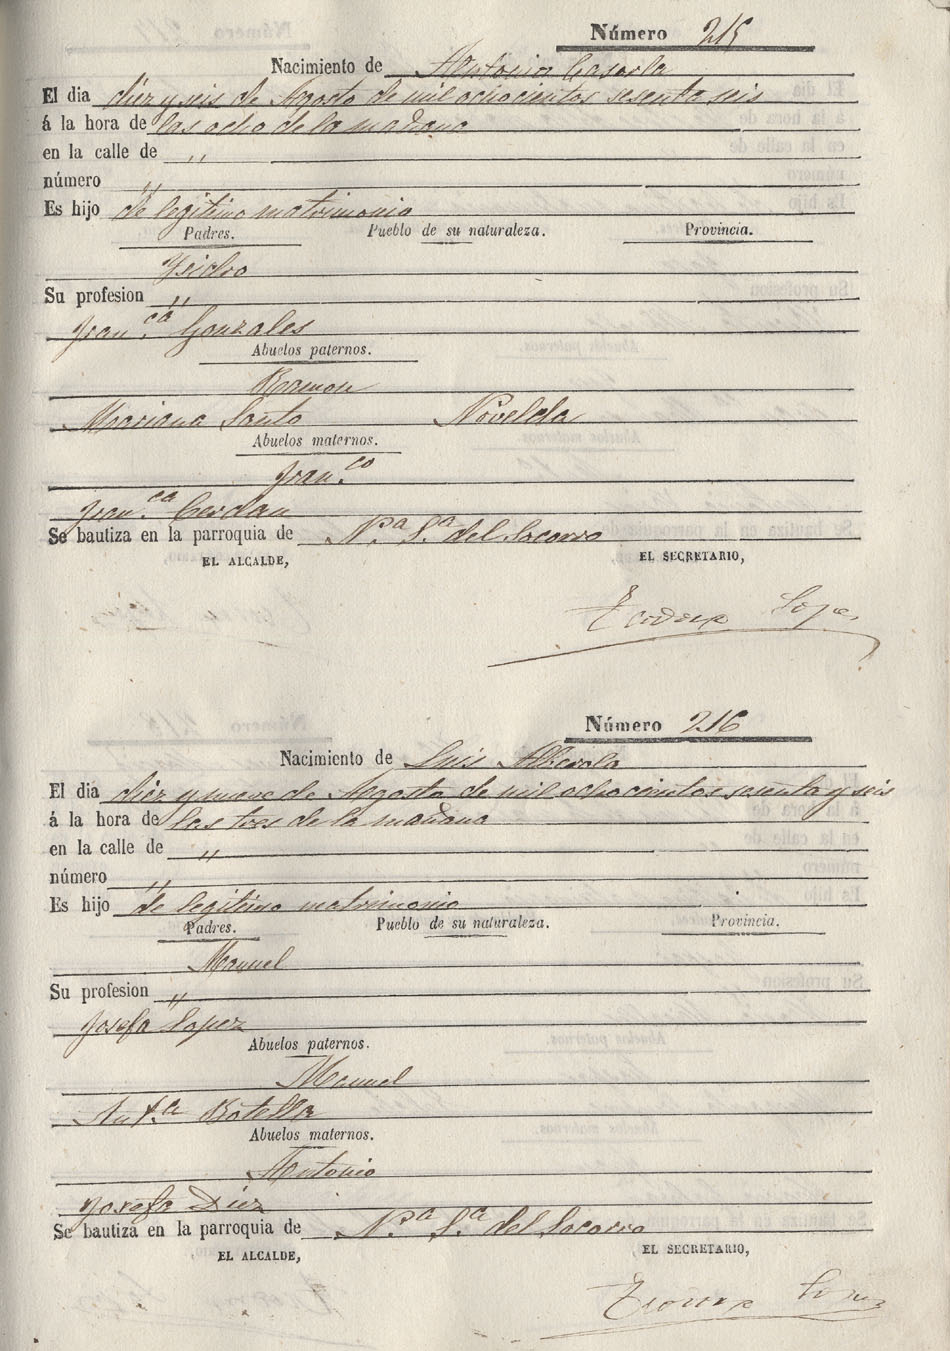 Número 215
Nacimiento de Antonio Casorla
El dia diez y seis de Agosto de mil ochocientos sesenta seis
á la hora de las ocho de la mañana
en la calle de "
número "
Es hijo de legitimo matrimonio
Padres. Pueblo de su naturaleza. Provincia.
Ysidro
Su profesion "
Fran.ca Gonzales
Abuelos paternos.
Ramon
Mariana Santo Novelda
Abuelos maternos.
Fran.co
Fran.ca Cerdan
Se bautiza en la parroquia de N.a S.a del Socorro
EL ALCALDE, EL SECRETARIO,
Número 216
Nacimiento de Luis Alberola
El dia diez y nueve de Agosto de mil ochocientos sesenta y seis
á la hora de las tres de la mañana
en la calle de "
número "
Es hijo de legitimo matrimonio
Padres. Pueblo de su naturaleza. Provincia.
Manuel
Su profesion "
Josefa Lopez
Abuelos paternos.
Manuel
Ant.a Botella
Abuelos maternos.
Antonio
Josefa Diez
Se bautiza en la parroquia de N.a S.a del Socorro
EL ALCALDE, EL SECRETARIO,